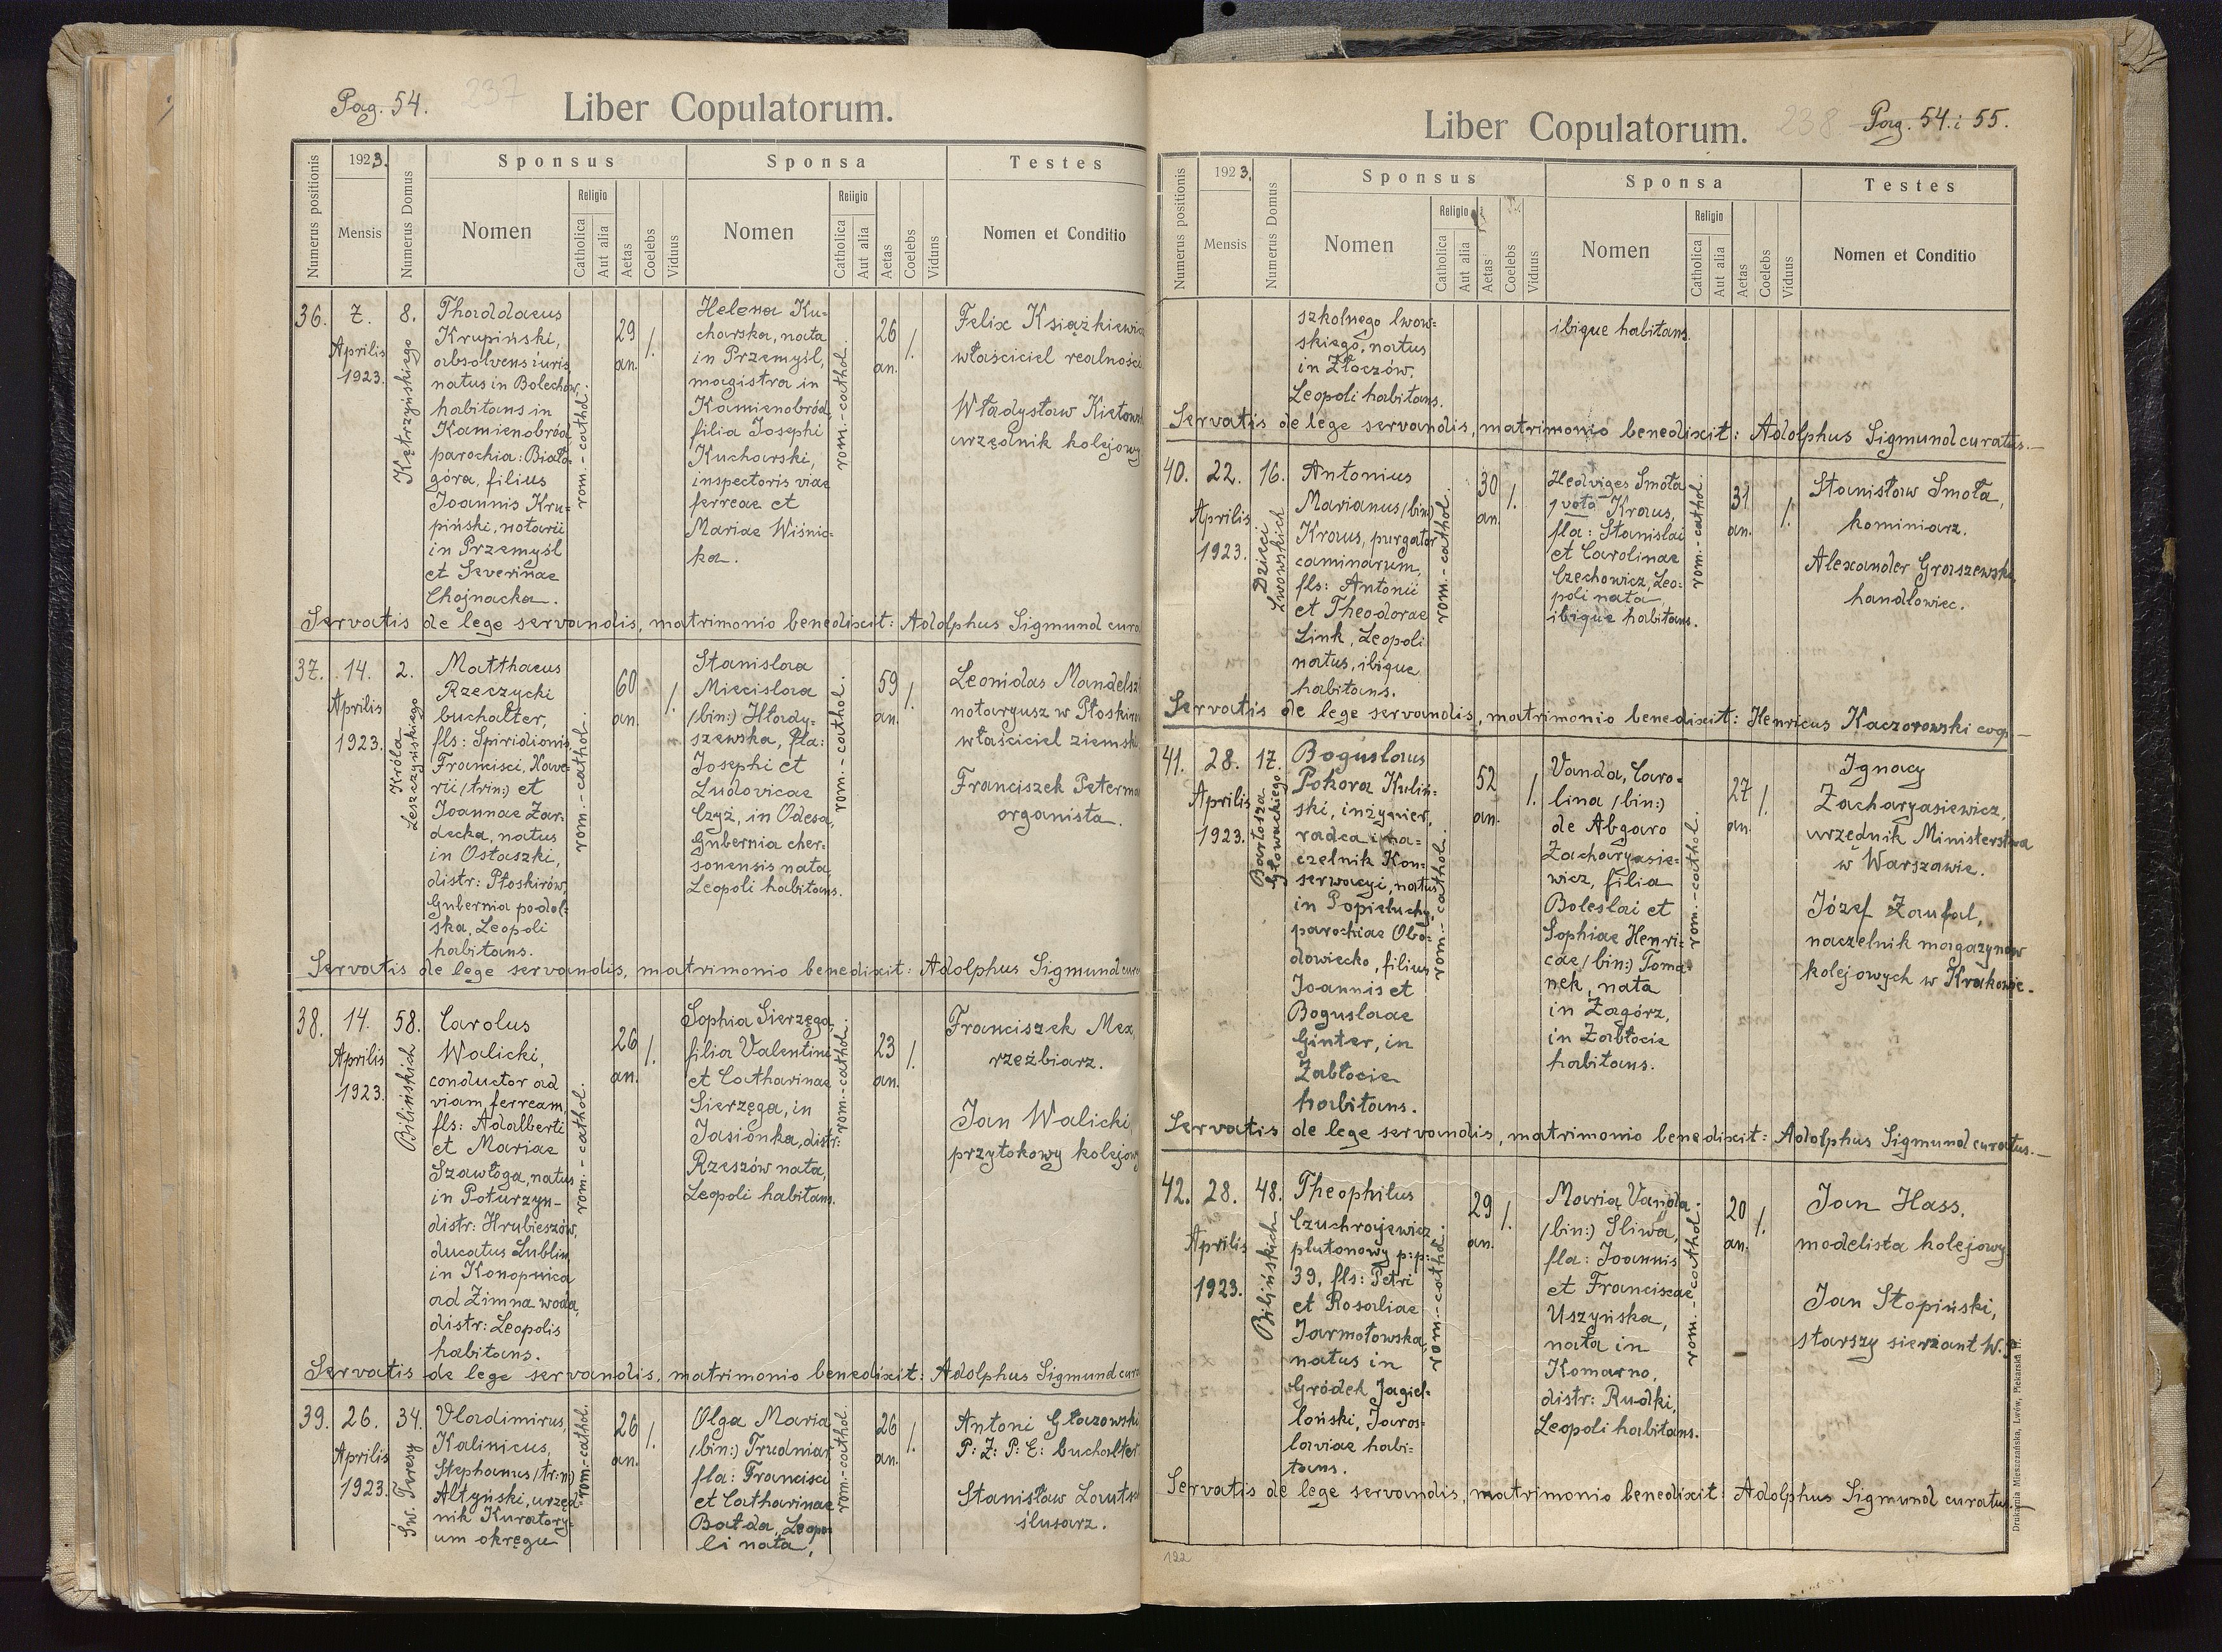 Pag. 54.
237
Liber Copulatorum.
Numerus positionis
1923.
Mensis
Numerus Domus
Sponsus
Nomen
Religio
Catholica
Aut alia
Aetas
Coelebs
Viduus
Sponsa
Nomen
Religio
Catholica
Aut alia
Aetas
Coelebs
Viduns
Testes
Nomen et Conditio
36.
7.
Aprilis
1923.
8.
Kętrzyńskiego
Thaddaeus
Krupiński,
absolvens iuris,
natus in Bolechów,
habitans in
Kamienobród
parochia: Biało-
góra, filius
Joannis Kru-
piński, notarii
in Przemyśl
et Severinae
Chojnacka.
rom.-cathol.
29
an.
1.
Helena Ku-
charska, nata
in Przemyśl,
magistra in
Kamienobród,
filia Josephi
Kucharski,
inspectoris viae
ferreae et
Mariae Wiśnic-
ka.
rom.-cathol.
26
an.
1.
Felix Książkiewicz
właściciel realności
Władysław
urzędnik kolejowy
Servatis de lege servandis, matrimonio benedixit: Adolphus Sigmund cura
37.
14.
Aprilis
1923.
2.
Króla
Leszczyńskiego
Matthaeus
Rzeczycki
buchalter,
fls: Spiridionis
Francisci, Xave-
rii (trin:) et
Joannae Zar-
decka, natus
in Ostaszki,
distr: Płoskirów,
Gubernia podol-
ska, Leopoli
habitans.
rom.-cathol.
60
an.
1.
Stanislaa
Miecislaa
(bin:) Hłady-
szewska, fla:
Josephi et
Ludovicae
Czyż, in Odesa,
Gubernia cher-
sonensis nata,
Leopoli habitans.
rom.-cathol.
59
an.
1.
Leonidas Mandelsz
notaryusz w Płoskiro
właściciel ziemski
Franciszek Peterma
organista.
Servatis de lege servandis, matrimonio benedixit: Adolphus Sigmund cura
38.
14.
Aprilis
1923.
58.
Bilińskich
Carolus
Walicki,
conductor ad
viam ferream,
fls: Adalberti
et Mariae
Szawłoga, natus
in Poturzyn-
distr: Hrubieszów,
ducatus Lublin,
in Konopnica
ad Zimna woda,
distr: Leopolis
habitans.
rom.-cathol.
26
an.
1.
Sophia Sierzęga,
filia Valentini
et Catharinae
Sierzęga, in
Jasionka, distr:
Rzeszów nata,
Leopoli habitans.
rom.-cathol.
23
an.
1.
Franciszek Mex,
rzeźbiarz.
Jan Walicki,
przytokowy kolejowy
Servatis de lege servandis, matrimonio benedixit: Adolphus Sigmund cura
39.
26.
Aprilis
1923.
34.
Św. Teresy
Vladimirus,
Kalinicus,
Stephanus (trin:)
Altyński, urzęd-
nik Kuratory-
um okręgu
rom.-cathol.
26
an.
1.
Olga Maria
(bin:) Trudniar,
fla: Francisci
et Catharinae
Bałda, Leopo-
li nata,
rom.-cathol.
26
an.
1.
Antoni Głazowski
P: Z: P: E: buchalter
Stanisław Lautsc
ślusarz.
Liber Copulatorum.
238
Pag. 54. i 55.
Numerus positionis
1923.
Mensis
Numerus Domus
Sponsus
Nomen
Religio
Catholica
Aut alia
Aetas
Coelebs
Viduus
Sponsa
Nomen
Religio
Catholica
Aut alia
Aetas
Coelebs
Viduus
Testes
Nomen et Conditio
szkolnego lwow-
skiego, natus
in Złoczów.
Leopoli habitans.
ibique habitans.
Servatis de lege servandis, matrimonio benedixit: Adolphus Sigmund curatus.
40.
22.
Aprilis
1923.
16.
Dzieci
Lwowskich
Antonius
Marianus (bin:)
Kraus, purgator
caminarum,
fls: Antonii
et Theodorae
Link, Leopoli
natus, ibique
habitans.
rom.-cathol.
30
an.
1.
Hedviges Smoła
1 voto Kraus,
fla: Stanislai
et Carolinae
Czechowicz, Leo-
poli nata,
ibique habitans.
rom.-cathol.
31
an.
1.
Stanisław Smoła,
kominiarz.
Alexander Graszewski,
handlowiec.
Servatis de lege servandis, matrimonio benedixit: Henricus Kaczorowski coop
41.
28.
Aprilis
1923.
17.
Bartosza
Głowackiego
Boguslaus
Pokora Kuliń-
ski, inżynier,
radca i na-
czelnik Kon-
serwacyi, natus
in Popieluchy,
parochiae Obo-
dowiecko, filius
Joannis et
Boguslaae
Ginter, in
Zabłocie
habitans.
rom.-cathol.
52
an.
1.
Vanda, Caro-
lina (bin:)
de Abgaro
Zacharyasie-
wicz, filia
Boleslai et
Sophiae Henri-
cae (bin:) Toma-
nek, nata
in Zagórz,
in Zabłocie
habitans.
rom.-cathol.
27
an.
1.
Ignacy
Zacharyasiewicz,
urzędnik Ministerstwa
w Warszawie.
Józef Zaufal,
naczelnik magazynów
kolejowych w Krakowie.
Servatis de lege servandis, matrimonio benedixit: Adolphus Sigmund curatus.
42.
28.
Aprilis
1923.
48.
Bilińskich
Theophilus
Czuchrajewicz
plutonowy p:p:
39, fls: Petri
et Rosaliae
Jarmołowska,
natus in
Gródek Jagiel-
loński, Jaros-
laviae habi-
tans.
rom.-cathol.
29
an.
1.
Maria Vanda
(bin:) Sliwa,
fla: Joannis
et Franciscae
Uszyńska,
nata in
Komarno,
distr: Rudki,
Leopoli habitans.
rom.-cathol.
20
an.
1.
Jan Hass,
modelista kolejowy
Jan Stopiński,
starszy sierżant W.P.
Servatis de lege servandis, matrimonio benedixit: Adolphus Sigmund curatus.
Drukarnia Mieszczańska, Lwów, Piekarska 11.
122